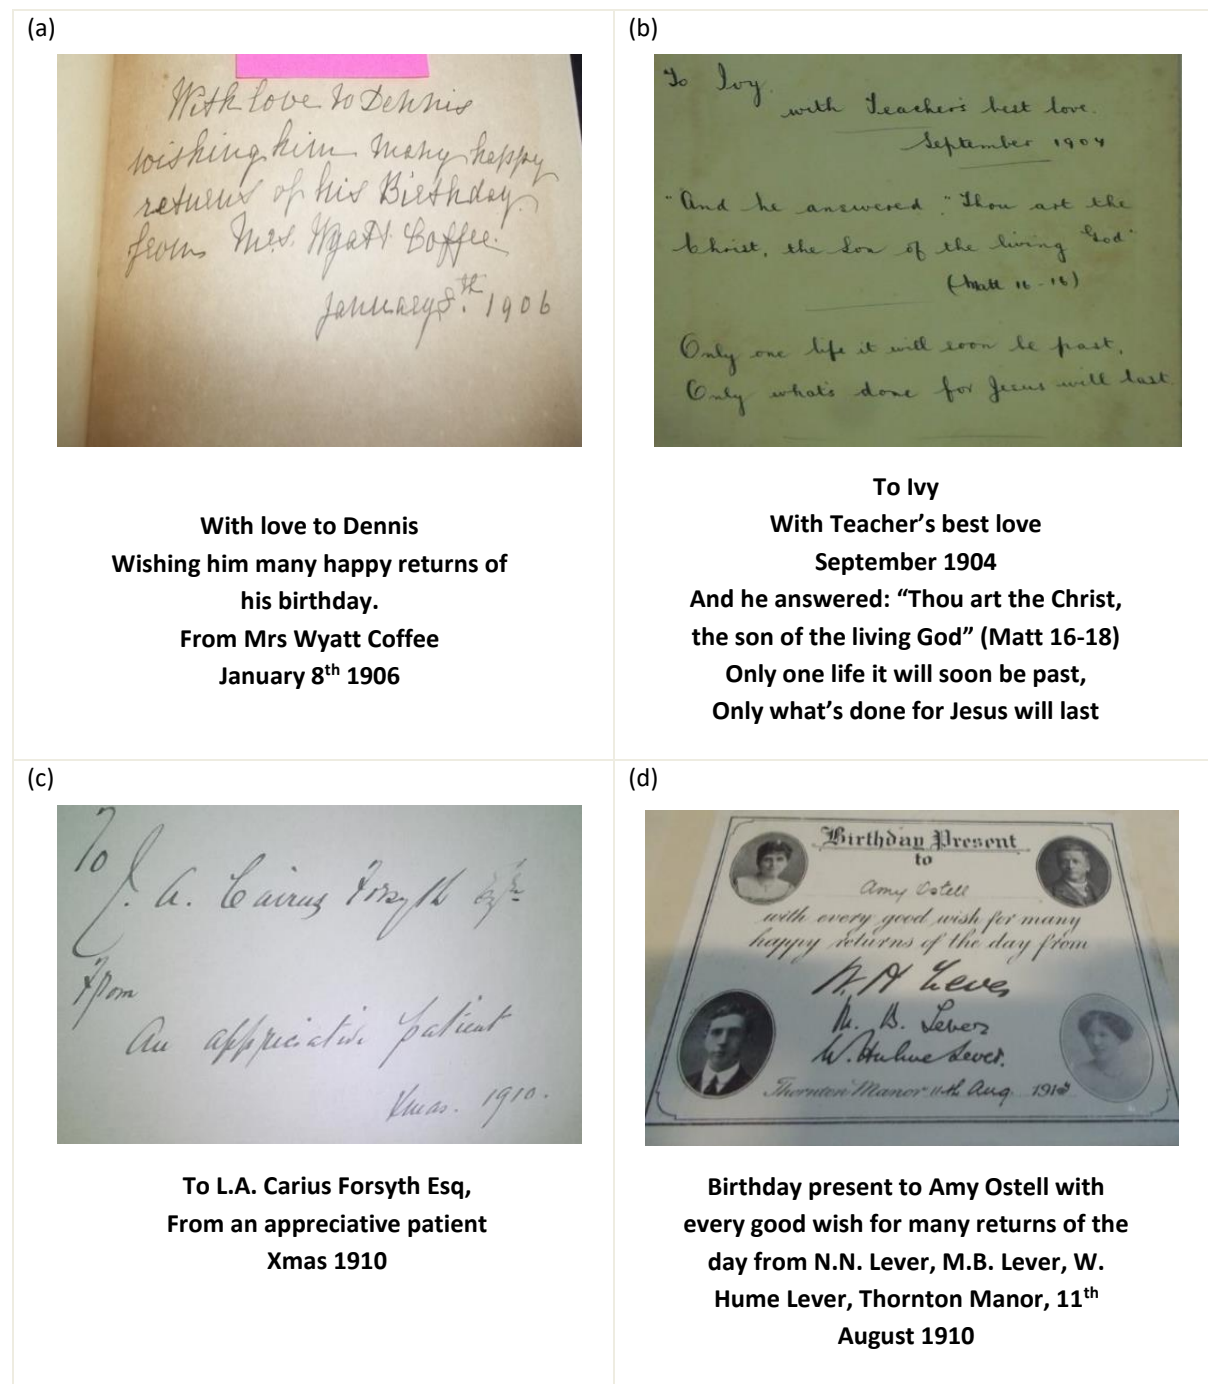 (a)
With love to Dennis
wishing him many happy
returns of his Birthday.
from Mrs. Wyatt Coffee.
January 8th. 1906
With love to Dennis
Wishing him many happy returns of
his birthday.
From Mrs Wyatt Coffee
January 8th 1906
(b)
To Ivy.
with Teacher's best love.
September 1904
"And he answered "Thou art the
Christ, the Son of the living God"
(Matt 16-16)
Only one life it will soon be past,
Only what's done for Jesus will last.
To Ivy
With Teacher’s best love
September 1904
And he answered: “Thou art the Christ,
the son of the living God” (Matt 16-18)
Only one life it will soon be past,
Only what’s done for Jesus will last
(c)
To
J. A. Cairns Forsyth Esqre
From
An appreciative patient
Xmas. 1910.
To L.A. Carius Forsyth Esq,
From an appreciative patient
Xmas 1910
(d)
Birthday Present
to
Amy Ostell
with every good wish for many
happy returns of the day from
W. H Lever
M. B. Lever
W. Hulme Lever.
Thornton Manor 11th Aug. 191
Birthday present to Amy Ostell with
every good wish for many returns of the
day from N.N. Lever, M.B. Lever, W.
Hume Lever, Thornton Manor, 11th
August 1910